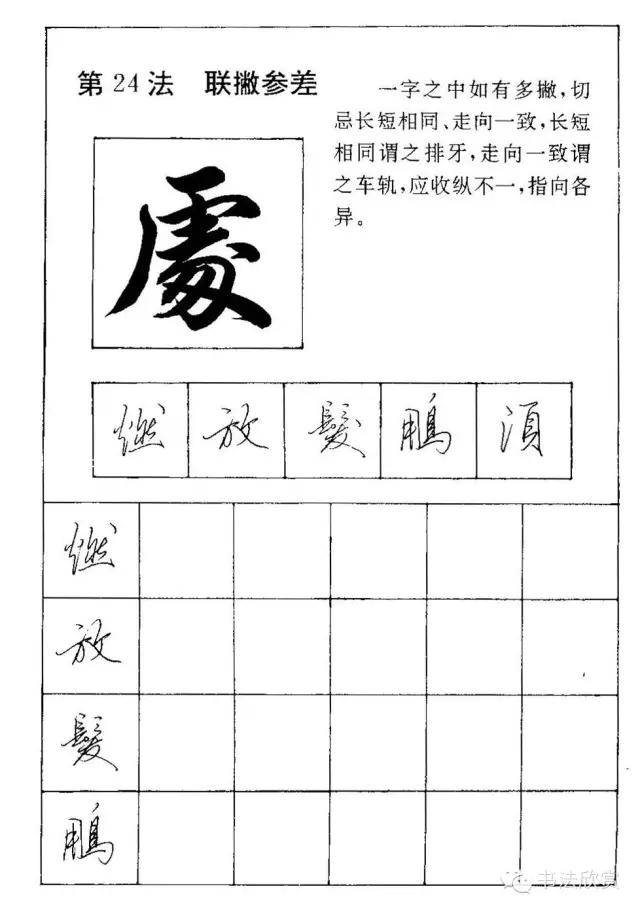 第24法 联撇参差
一字之中如有多撇,切
忌长短相同、走向一致,长短
相同谓之排牙,走向一致谓
之车轨,应收纵不一,指向各
异。
處
燃 放 髮 鵬 須
燃
放
髮
鵬
书法欣赏